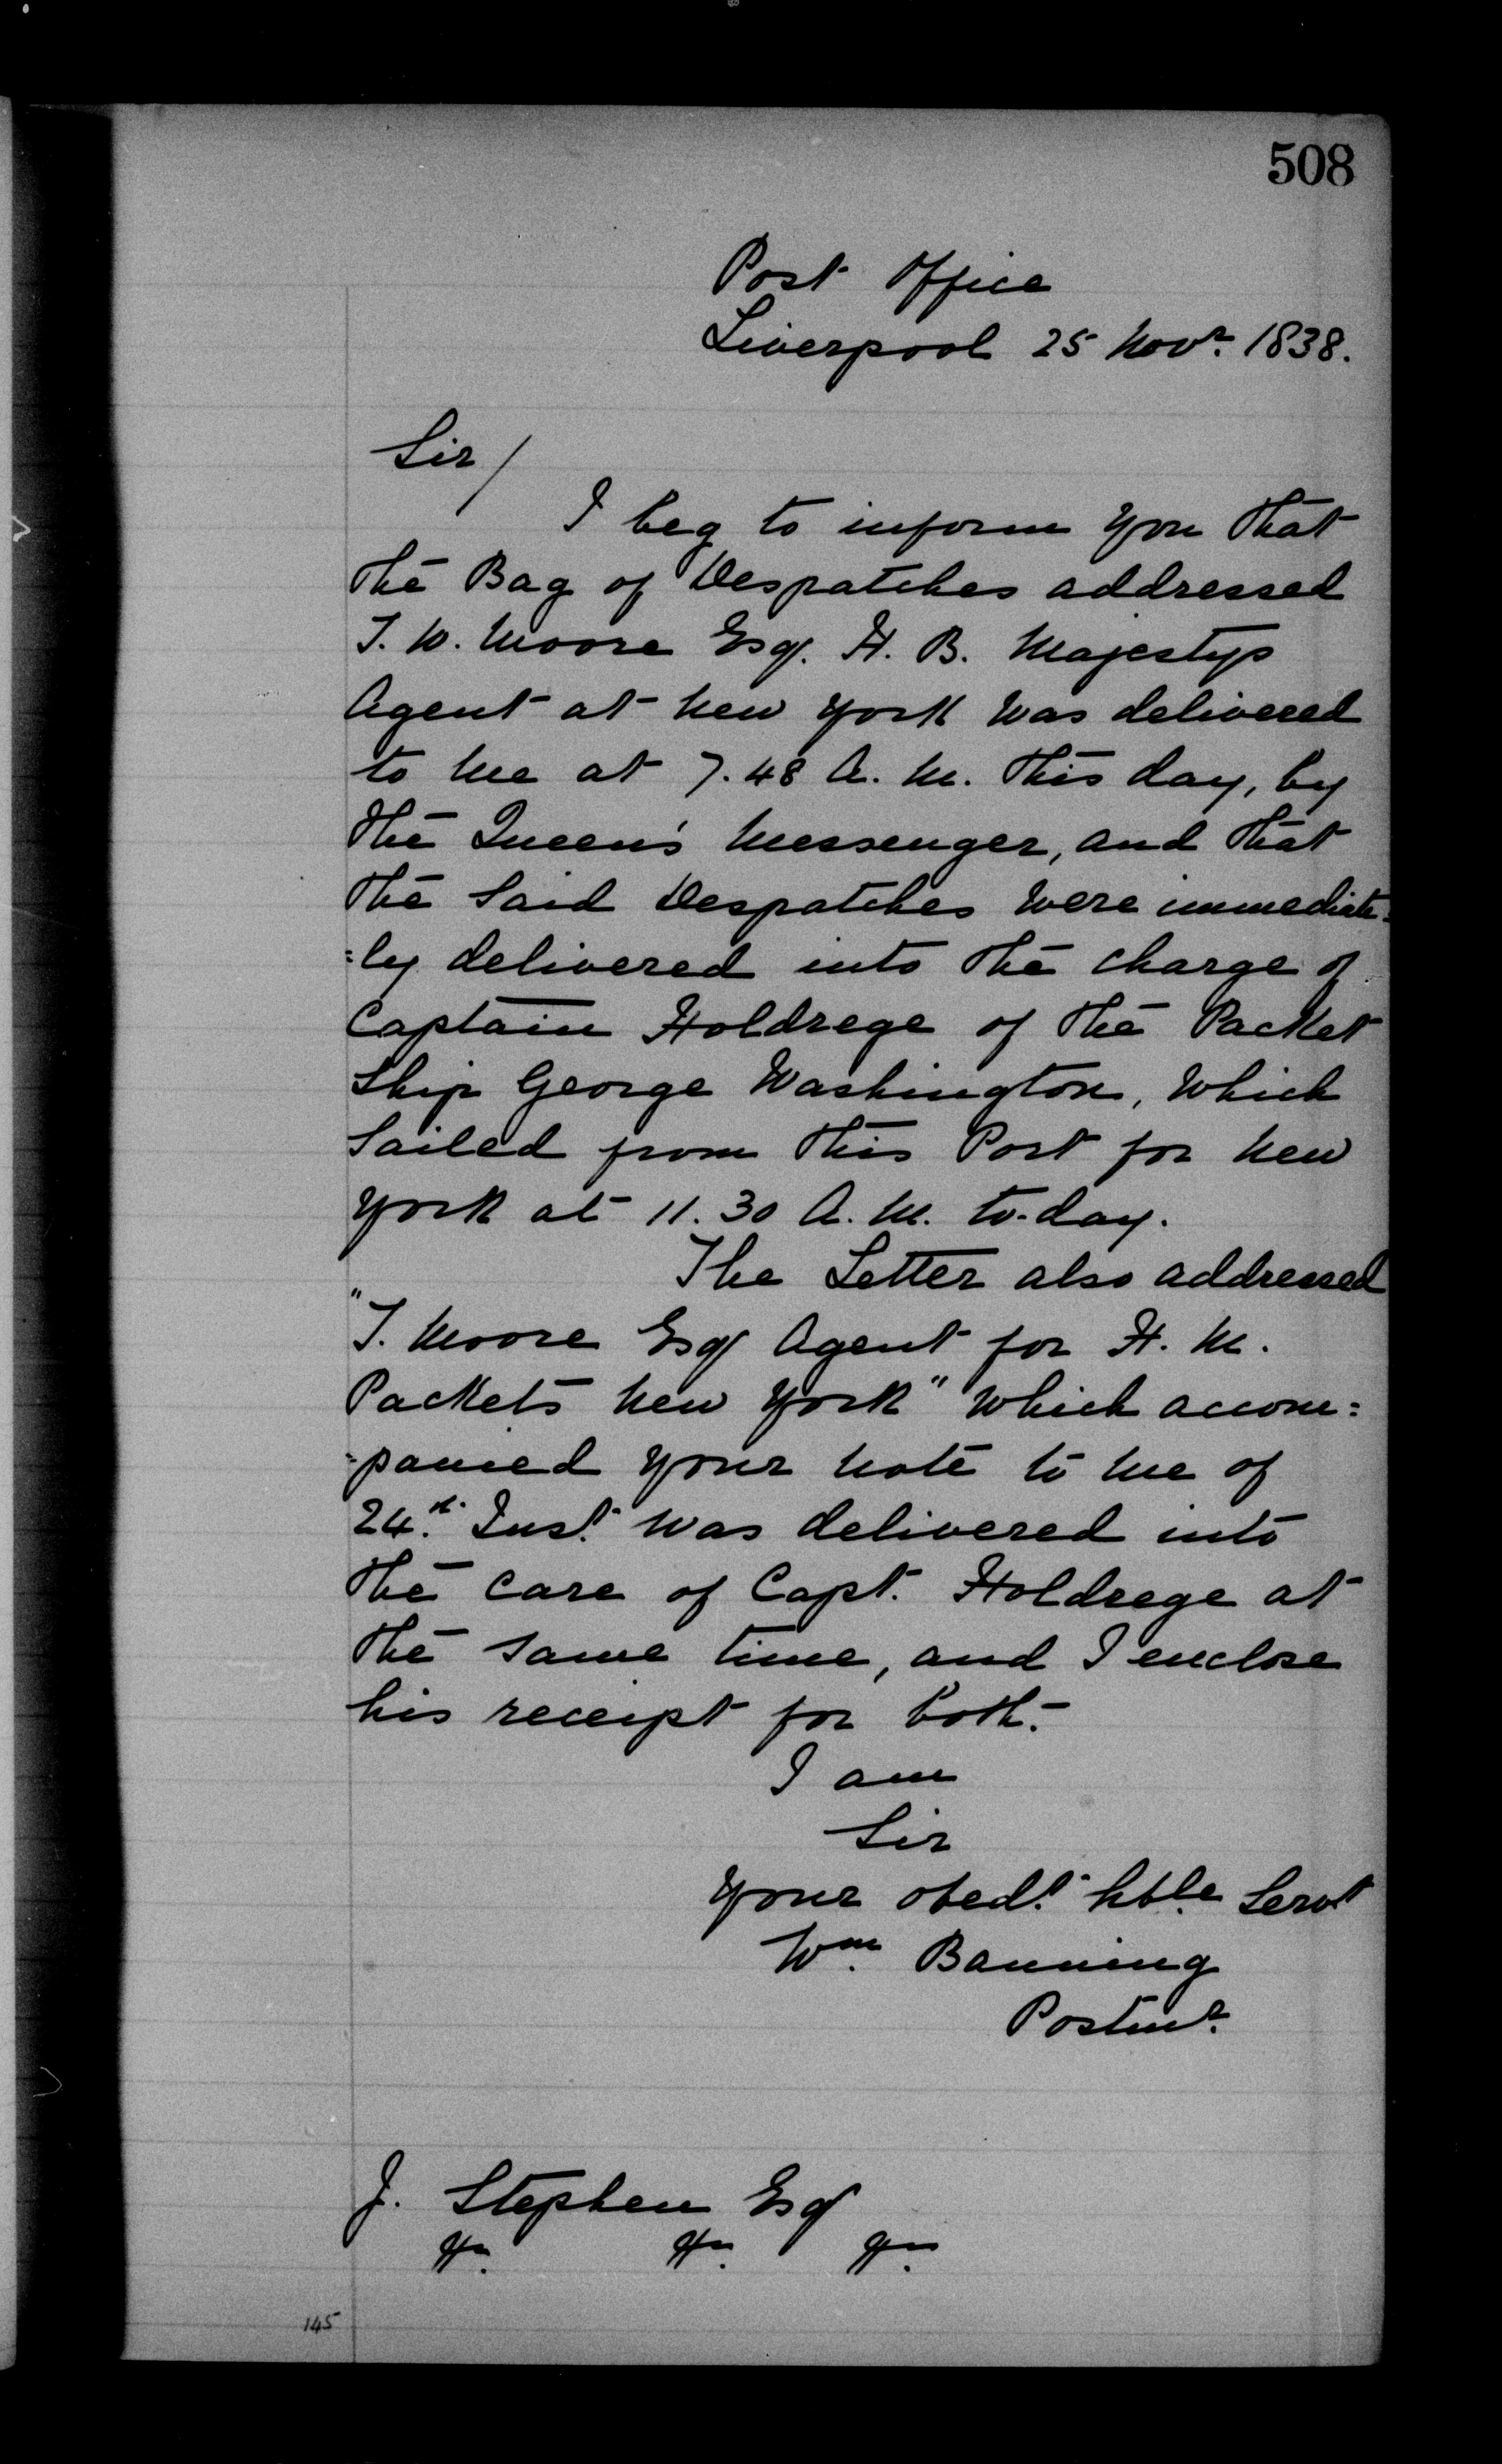 508
Post Office
Liverpool 25 Novr. 1838.
Sir/
I beg to inform you that
the Bag of Despatches addressed
T. W. Moore Esqr. H. B. Majestys
Agent at New York was delivered
to me at 7.48 A. M. this day, by
the Queen's Messenger, and that
the Said Despatches were immediate=
=ly delivered into the charge of
Captain Holdrege of the Packet
Ship George Washington, which
Sailed from this Port for New
York at 11.30 A. M. to-day.
The Letter also addressed
"T. Moore Esqr Agent for H. M.
Packets New York" which accom=
=panied your note to me of
24th. Inst. was delivered into
the care of Capt. Holdrege at
the same time, and I enclose
his receipt for both.
I am
Sir
Your obedt. hble Servt
Wm. Banning
Postmr.
J. Stephen Esqr
&c. &c. &c.
145